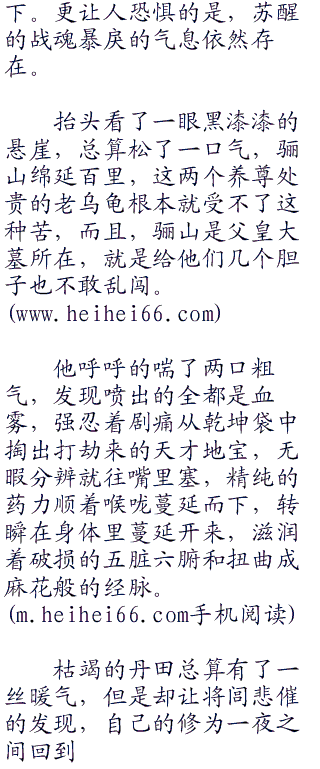 下。更让人恐惧的是，苏醒
的战魂暴戾的气息依然存
在。
抬头看了一眼黑漆漆的
悬崖，总算松了一口气，骊
山绵延百里，这两个养尊处
贵的老乌龟根本就受不了这
种苦，而且，骊山是父皇大
墓所在，就是给他们几个胆
子也不敢乱闯。
(www.heihei66.com)
他呼呼的喘了两口粗
气，发现喷出的全都是血
雾，强忍着剧痛从乾坤袋中
掏出打劫来的天才地宝，无
暇分辨就往嘴里塞，精纯的
药力顺着喉咙蔓延而下，转
瞬在身体里蔓延开来，滋润
着破损的五脏六腑和扭曲成
麻花般的经脉。
(m.heihei66.com手机阅读)
枯竭的丹田总算有了一
丝暖气，但是却让将闾悲催
的发现，自己的修为一夜之
间回到